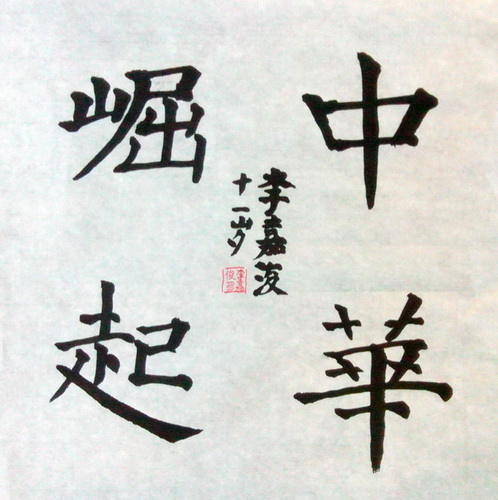 中華
崛起
李嘉
十一岁